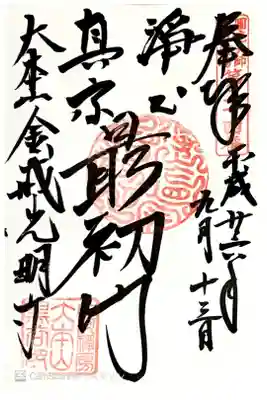 奉拝
平成廿六年
九月十三日
淨土
真宗
最初門
大本山金戒光明寺